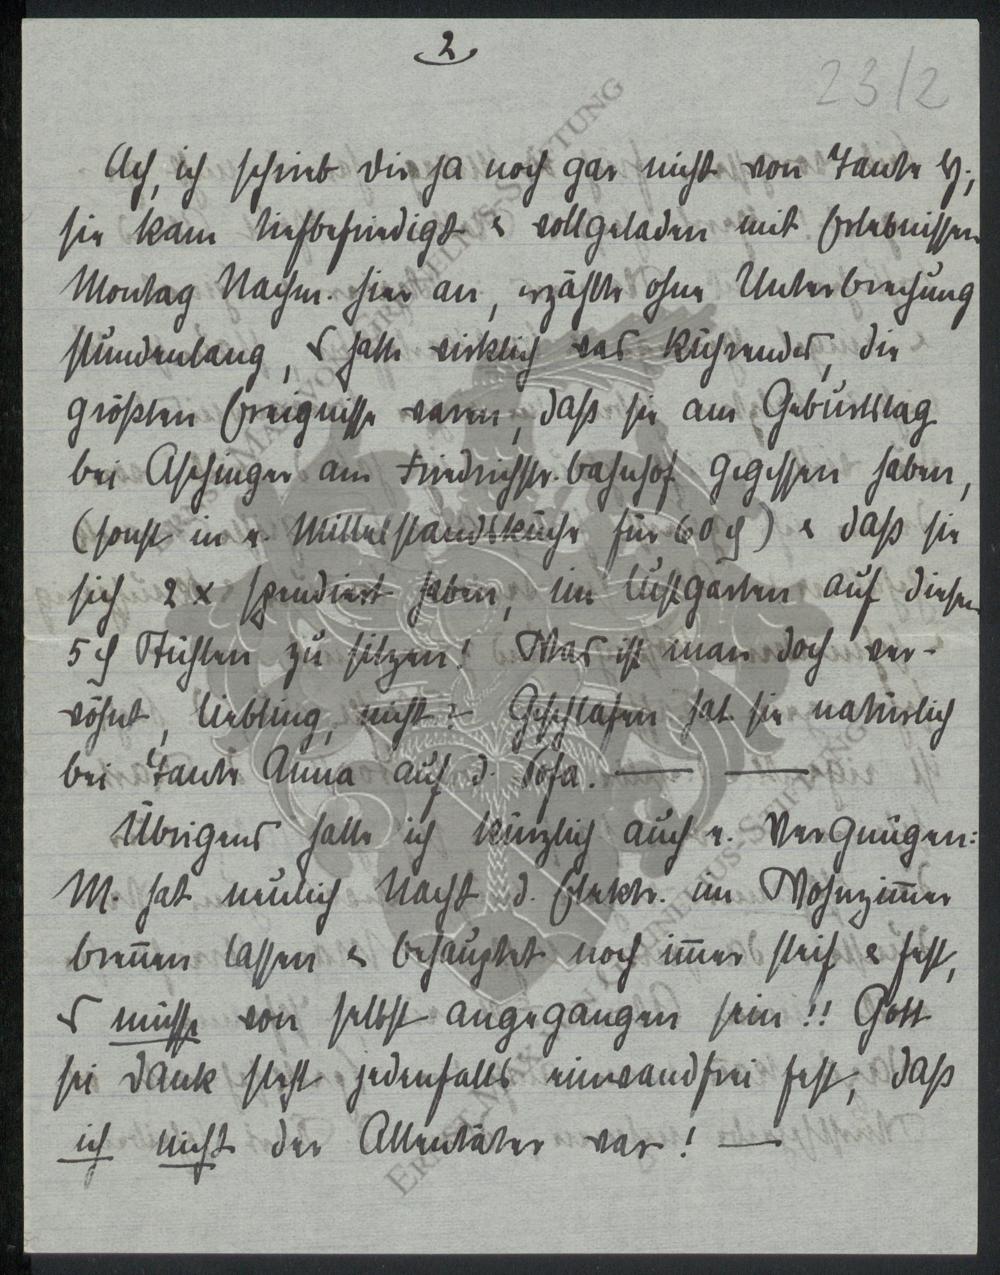 2
23/2
Ach, ich schrieb Dir ja noch gar nicht von Tante H;
sie kam tiefbefriedigt & vollgeladen mit Erlebnissen
Montag Nachm. hier an, erzählte ohne Unterbrechung
stundenlang, & hatte wirklich was Rührendes, die
größten Ereignisse waren, daß sie am Geburtstag
bei Aschinger am Friedrichstr.bahnhof gegessen haben,
(sonst in e. Mittelstandsküche für 60 ₰) & daß sie
sich 2 x spendiert haben, im Lustgarten auf diesen
5 ₰ Stühlen zu sitzen! Was ist man doch ver-
wöhnt, Liebling, nicht? – Geschlafen hat sie natürlich
bei Tante Anna auf d. Sofa. — —
Übrigens hatte ich kürzlich auch e. Vergnügen:
M. hat neulich Nacht d. Elektr. im Wohnzim̄er
bren̄en lassen & behauptet noch im̄er steif & fest,
es müsse von selbst angegangen sein!! Gott
sei Dank steht jedenfalls einwandfrei fest, daß
ich nicht der Attentäter war! —
ERNST-MAX VON GRUNELIUS-STIFTUNG
ERNST-MAX VON GRUNELIUS-STIFTUNG